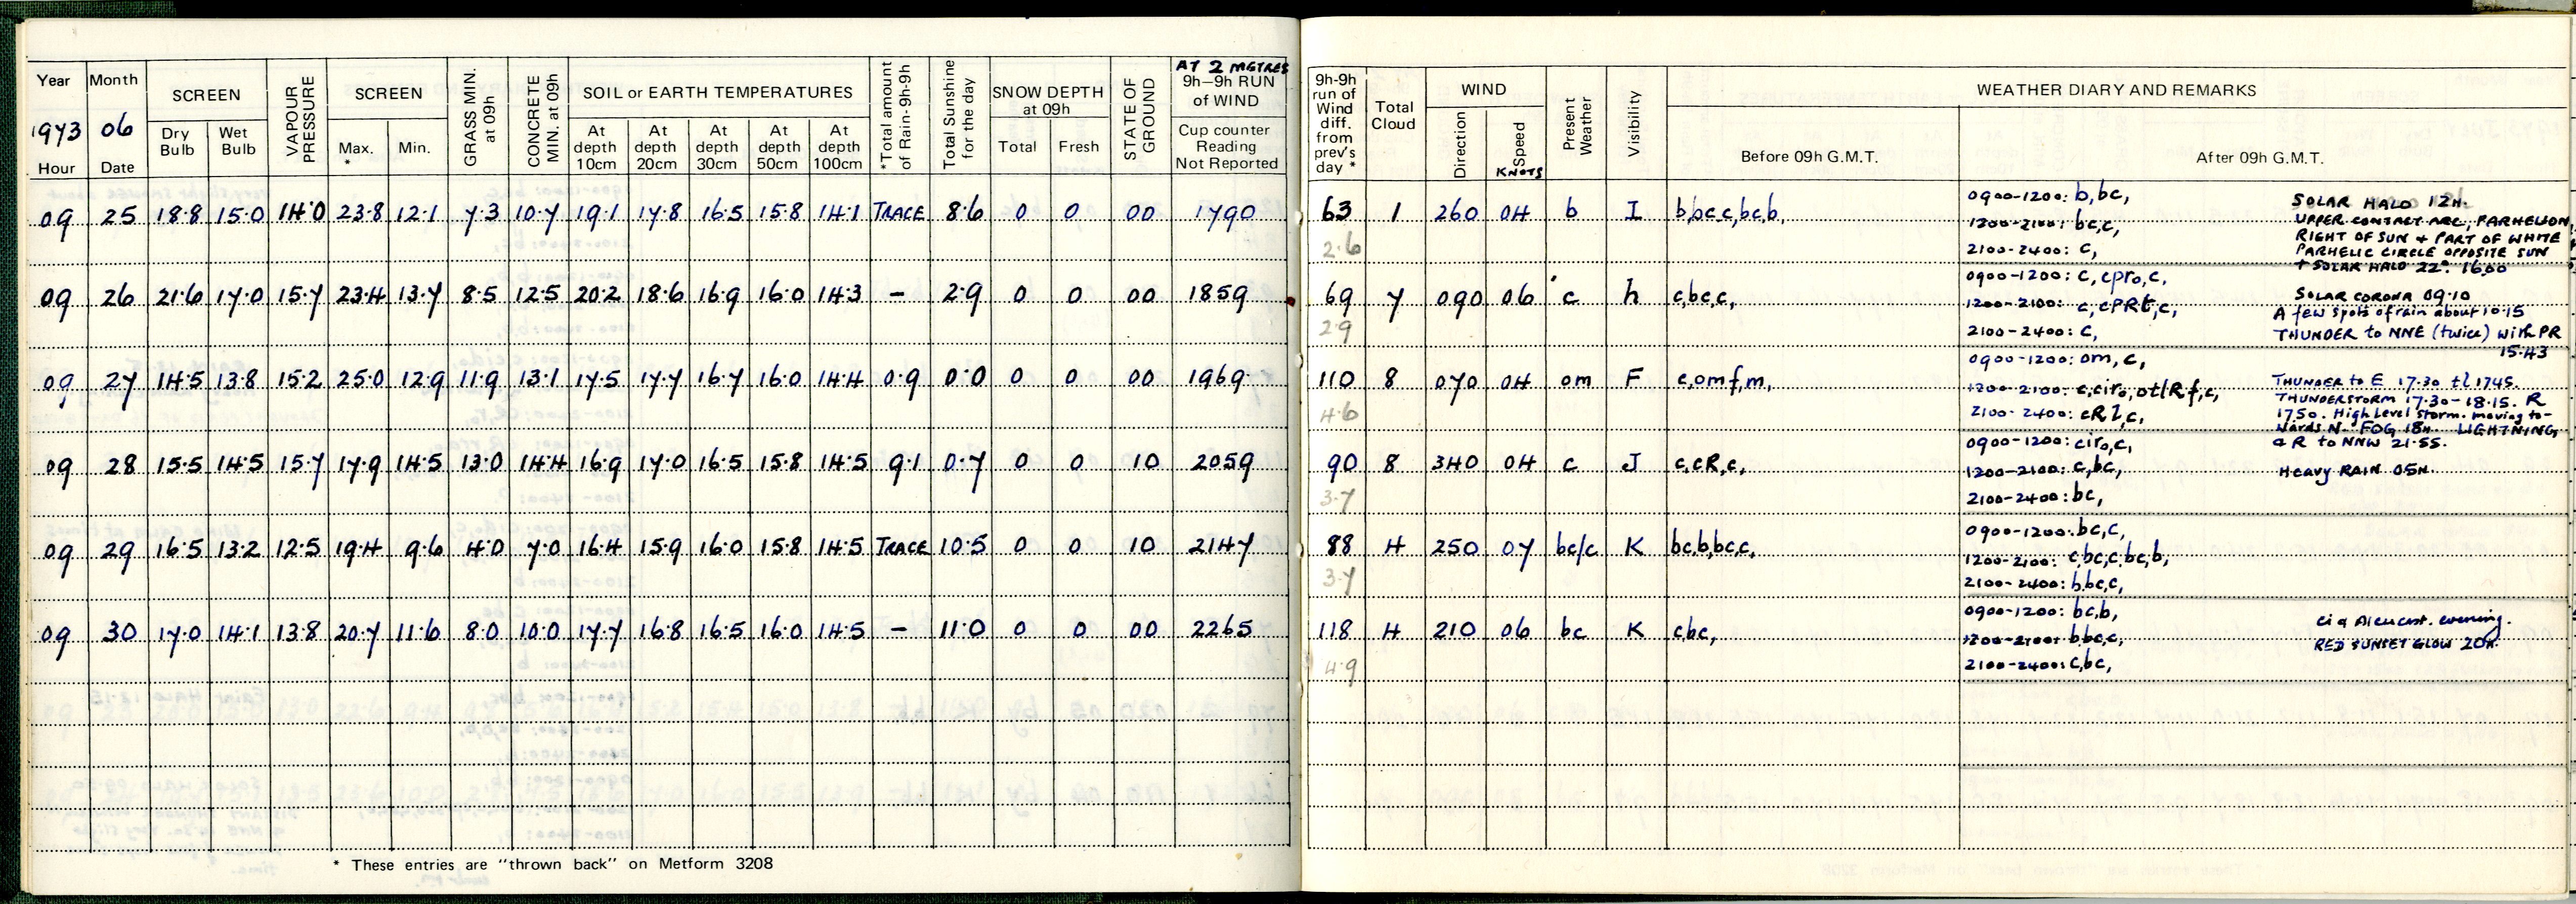 Year Month SCREEN VAPOUR PRESSURE SCREEN GRASS MIN. at 09h CONCRETE MIN. at 09h SOIL or EARTH TEMPERATURES *Total amount of Rain-9h-9h Total Sunshine for the day SNOW DEPTH at 09h STATE OF GROUND AT 2 METRES 9h–9h RUN of WIND
1973 06 Dry Bulb Wet Bulb Max. * Min. At depth 10cm At depth 20cm At depth 30cm At depth 50cm At depth 100cm Total Fresh Cup counter Reading Not Reported
Hour Date
09 25 18.8 15.0 14.0 23.8 12.1 7.3 10.7 19.1 17.8 16.5 15.8 14.1 TRACE 8.6 0 0 00 1790
09 26 21.6 17.0 15.7 23.4 13.7 8.5 12.5 20.2 18.6 16.9 16.0 14.3 – 2.9 0 0 00 1859
09 27 14.5 13.8 15.2 25.0 12.9 11.9 13.1 17.5 17.7 16.7 16.0 14.4 0.9 0.0 0 0 00 1969
09 28 15.5 14.5 15.7 17.9 14.5 13.0 14.4 16.9 17.0 16.5 15.8 14.5 9.1 0.7 0 0 10 2059
09 29 16.5 13.2 12.5 19.4 9.6 4.0 7.0 16.4 15.9 16.0 15.8 14.5 TRACE 10.5 0 0 10 2147
09 30 17.0 14.1 13.8 20.7 11.6 8.0 10.0 17.7 16.8 16.5 16.0 14.5 – 11.0 0 0 00 2265
* These entries are "thrown back" on Metform 3208
9h-9h run of Wind diff. from prev's day * Total Cloud WIND Present Weather Visibility WEATHER DIARY AND REMARKS
Direction Speed KNOTS Before 09h G.M.T. After 09h G.M.T.
63 1 260 04 b I b,bc,c,bc,b, 0900-1200: b,bc, SOLAR HALO 12H.
1200-2100: bc,c, UPPER CONTACT ARC, PARHELION
2.6 RIGHT OF SUN + PART OF WHITE
2100-2400: c, PARHELIC CIRCLE OPPOSITE SUN
+ SOLAR HALO 22°. 1600
69 7 090 06 c h c,bc,c, 0900-1200: c, cpro,c, SOLAR CORONA 09.10
1200-2100: c,cPRt,c, A few spots of rain about 10.15
2.9 2100-2400: c, THUNDER to NNE (twice) with PR
15.43
110 8 070 04 om F c,omf,m, 0900-1200: om, c,
1200-2100: c,ciro,otlRf,c, THUNDER to E 17.30 tl 1745.
THUNDERSTORM 17.30-18.15. R
4.6 2100-2400: cRl,c, 1750. High Level storm. moving to-
wards N. FOG 18H. LIGHTNING,
& R to NNW 21.55.
90 8 340 04 c J c,cR,c, 0900-1200: ciro,c,
1200-2100: c,bc, HEAVY RAIN 05H.
3.7 2100-2400: bc,
88 4 250 07 bc/c K bc,b,bc,c, 0900-1200: bc,c,
1200-2100: c,bc,c,bc,b,
3.7 2100-2400: b,bc,c,
118 4 210 06 bc K c,bc, 0900-1200: bc,b, Ci & Alcucast. evening.
1200-2100: b,bc,c, RED SUNSET GLOW 20H.
4.9 2100-2400: c,bc,